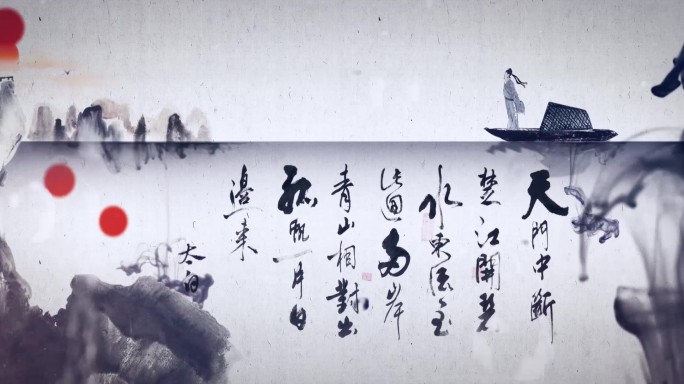 天門中斷
楚江開碧
水東流至
此迴兩岸
青山相對出
孤帆一片日
邊來
太白